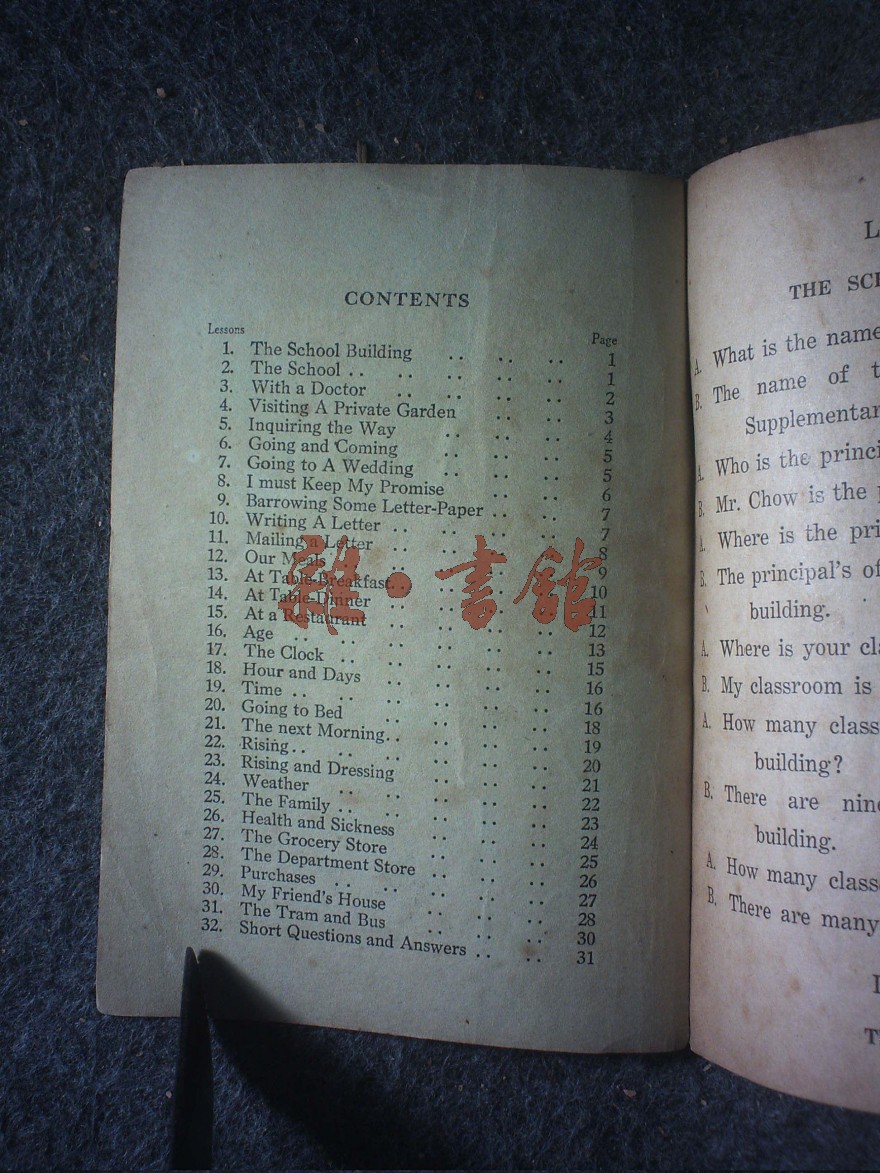 CONTENTS
Lessons Page
1. The School Building .. .. .. 1
2. The School .. .. .. .. 1
3. With a Doctor .. .. .. 2
4. Visiting A Private Garden .. .. 3
5. Inquiring the Way .. .. .. 4
6. Going and Coming .. .. .. 5
7. Going to A Wedding .. .. .. 5
8. I must Keep My Promise .. .. 6
9. Barrowing Some Letter-Paper .. .. .. 7
10. Writing A Letter .. .. .. .. 7
11. Mailing a Letter .. .. .. .. 8
12. Our Meals .. .. .. .. 9
13. At Table-Breakfast .. .. .. .. 10
14. At Table-Dinner .. .. .. .. 11
15. At a Restaurant .. .. .. .. 12
16. Age .. .. .. .. .. 13
17. The Clock .. .. .. .. .. 15
18. Hour and Days .. .. .. .. 16
19. Time .. .. .. .. .. .. 16
20. Going to Bed .. .. .. .. 18
21. The next Morning .. .. .. .. 19
22. Rising .. .. .. .. .. .. 20
23. Rising and Dressing .. .. .. 21
24. Weather .. .. .. .. .. 22
25. The Family .. .. .. .. .. 23
26. Health and Sickness .. .. .. 24
27. The Grocery Store .. .. .. 25
28. The Department Store .. .. .. 26
29. Purchases .. .. .. .. .. 27
30. My Friend's House .. .. .. 28
31. The Tram and Bus .. .. .. 30
32. Short Questions and Answers .. .. 31
雜·書館
THE
A. What is the name
B. The name of
Supplementar
A. Who is the princi
B. Mr. Chow is the
A. Where is the pri
B. The principal's of
building.
A. Where is your cla
B. My classroom is
A. How many class
building?
B. There are nine
building.
A. How many class
B. There are many